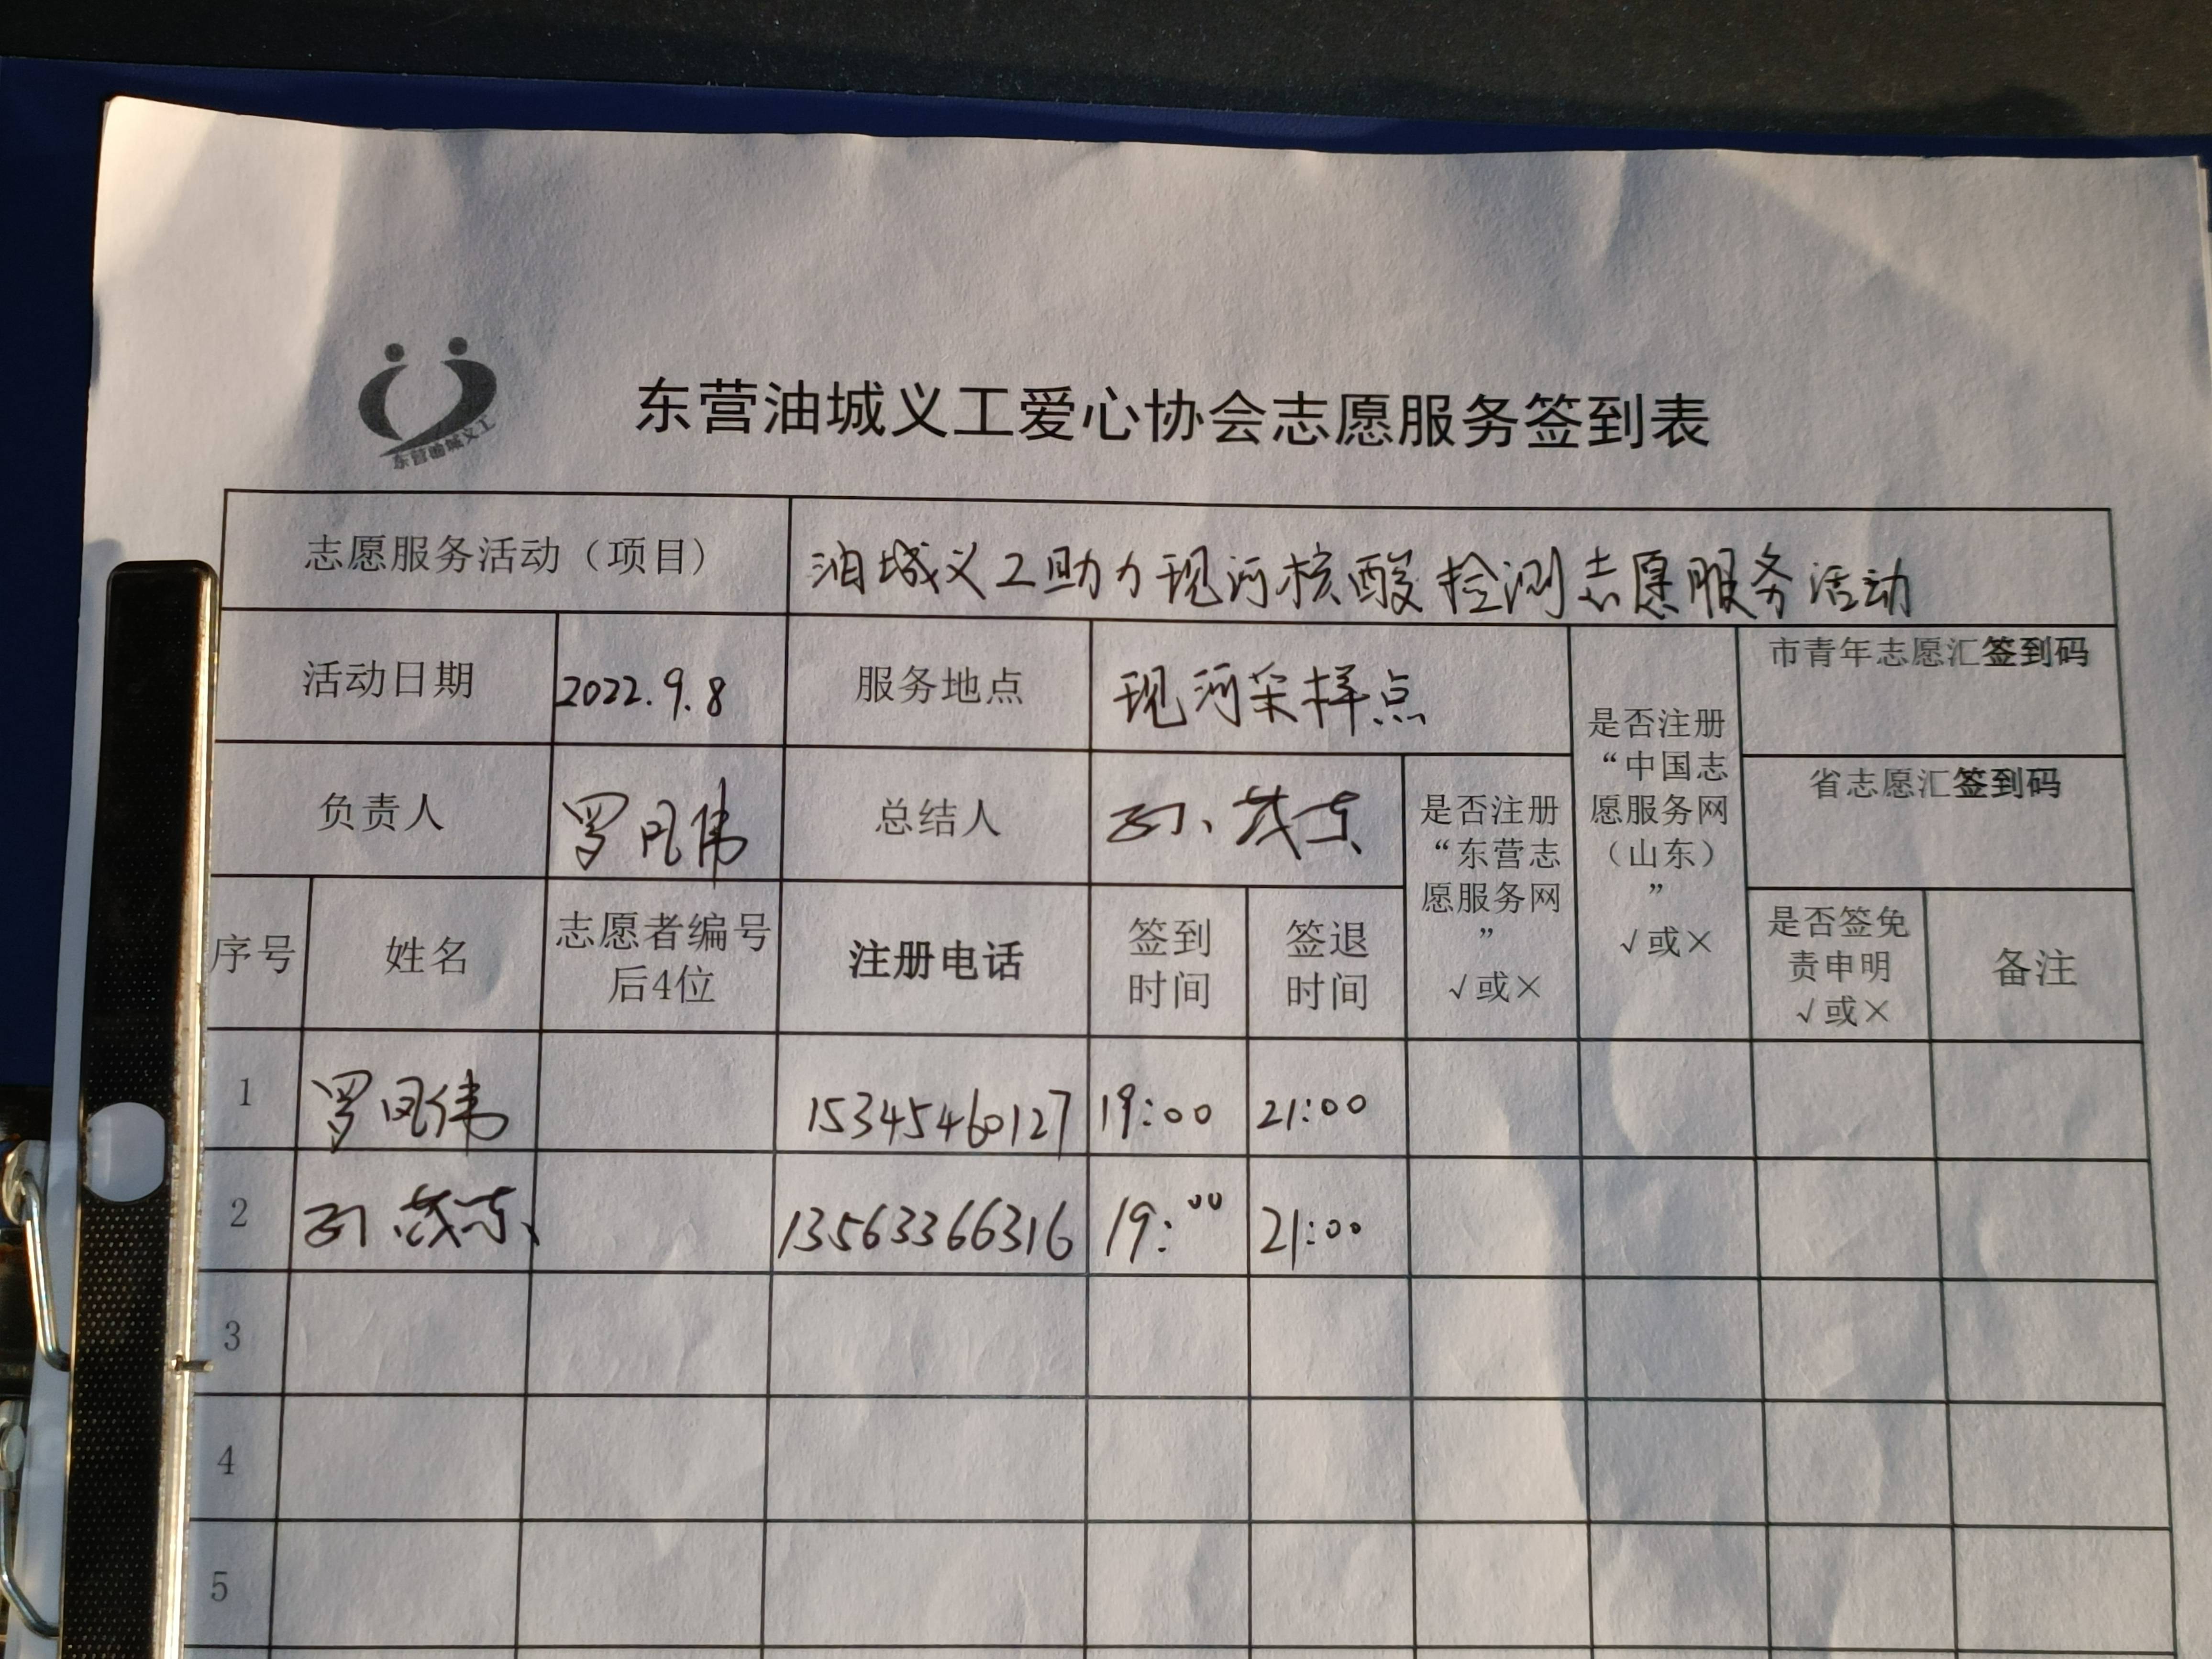 东营油城义工
东营油城义工爱心协会志愿服务签到表
志愿服务活动（项目） 油城义工助力现河核酸检测志愿服务活动
活动日期 2022.9.8 服务地点 现河采样点
市青年志愿汇签到码
负责人 罗凤伟 总结人 孙茂东
省志愿汇签到码
是否注册
“东营志
愿服务网
”
√或×
是否注册
“中国志
愿服务网
（山东）
”
√或×
序号 姓名
志愿者编号
后4位
注册电话
签到
时间
签退
时间
是否签免
责申明
√或×
备注
1 罗凤伟 15345460127 19:00 21:00
2 孙茂东 13563366316 19:00 21:00
3
4
5